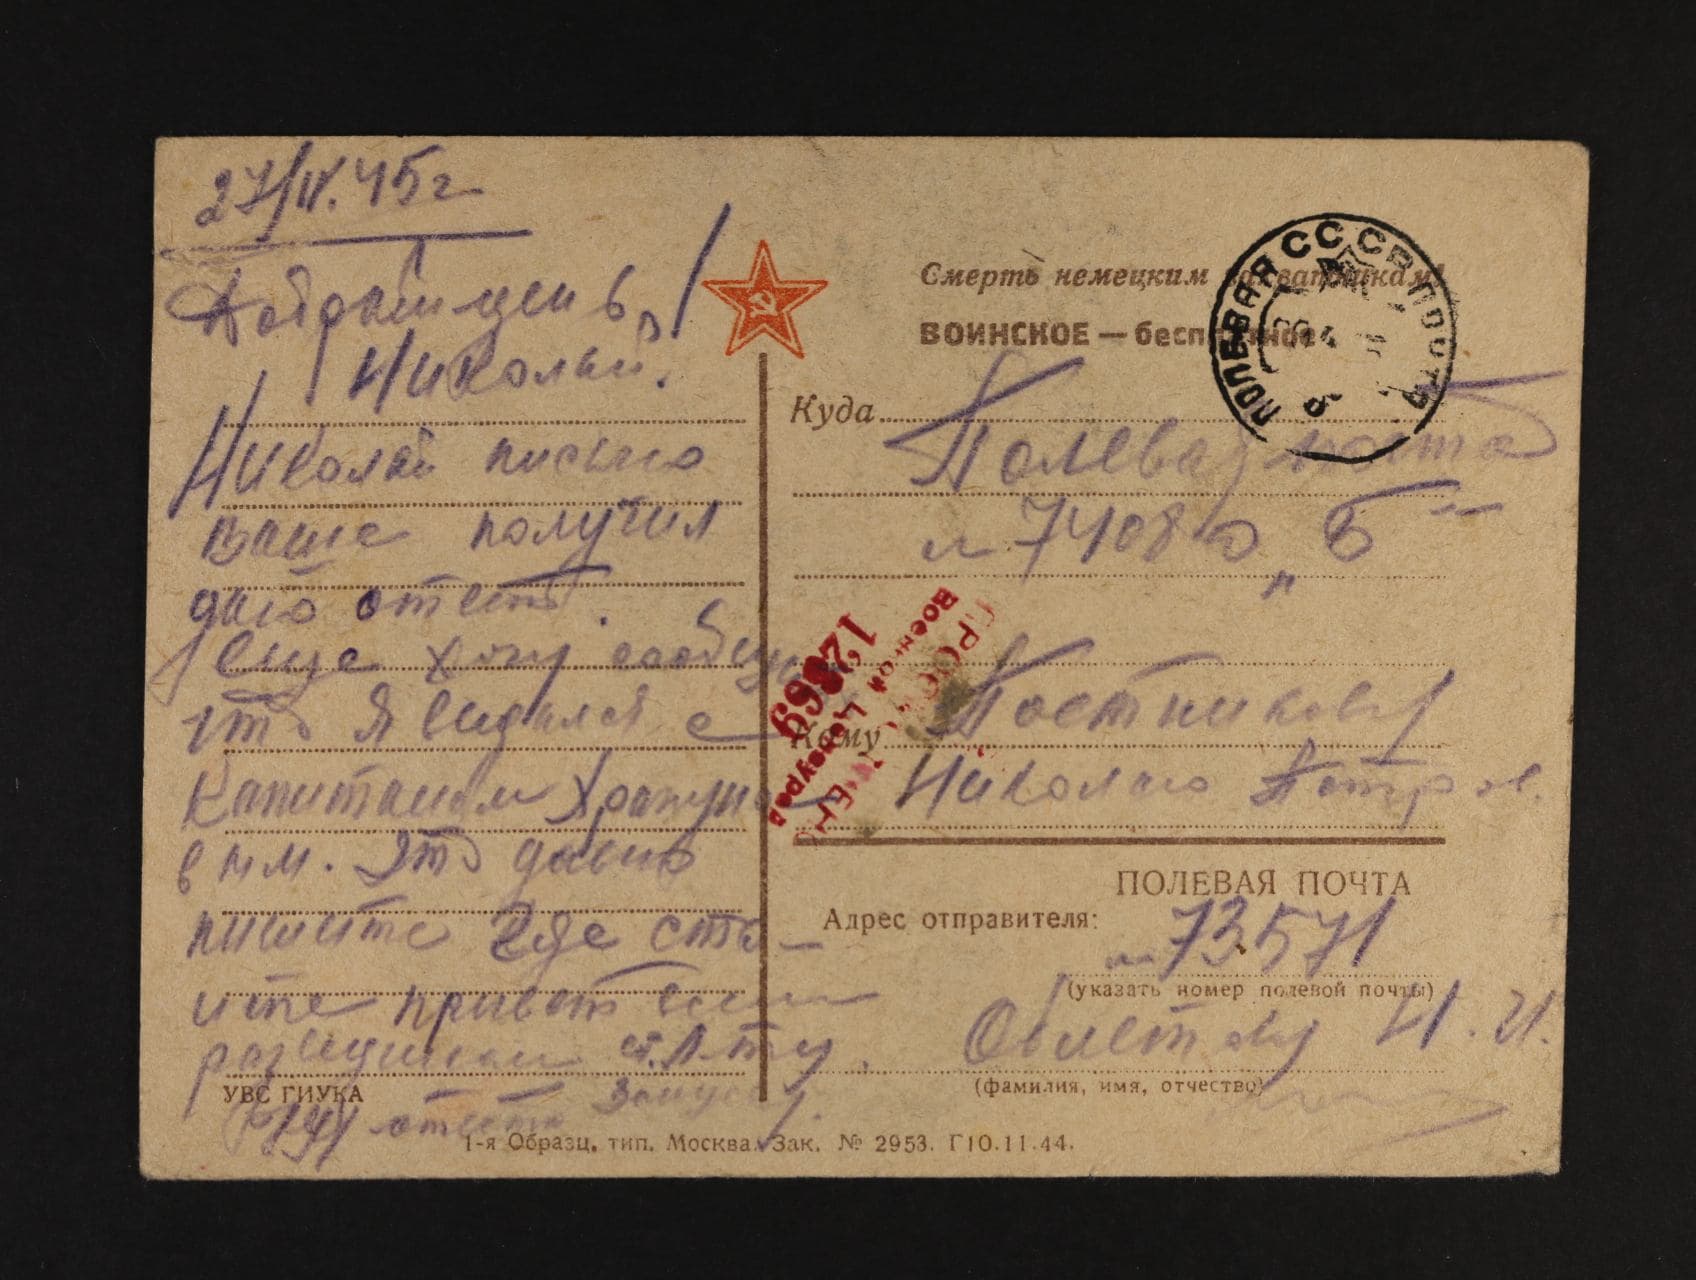 27/IV.45г
Добрый день!
Николай.
Николай письмо
ваше получил
даю ответ.
Еще хочу сообщить
что я виделся с
Капитаном
в нм. Это давно
пишите где сто-
ите привет всем
разведчикам ст. л-ту
жду ответа
УВС ГИУКА
1-я Образц. тип. Москва. Зак. № 2953. Г10.11.44.
Смерть немецким захватчикам!
ВОИНСКОЕ — бесплатное
ПОЛЕВАЯ ПОЧТА СССР
Куда
Полевая почта
№ 74080 „Б"
ПРОСМОТРЕНО
Военной Цензурой
12869
Кому
Постникову
Николаю Петров.
ПОЛЕВАЯ ПОЧТА
Адрес отправителя:
№ 73571
(указать номер полевой почты)
И. И.
(фамилия, имя, отчество)